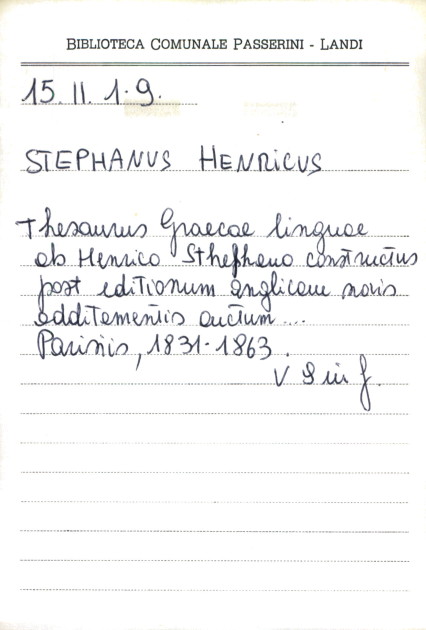 BIBLIOTECA COMUNALE PASSERINI - LANDI
15. II. 1. 9.
STEPHANUS HENRICUS
Thesaurus Graecae linguae
ab Henrico Sthephano constructus
post editionum anglicam novis
additamentis auctum ....
Parisiis, 1831-1863.
V 8 in f.